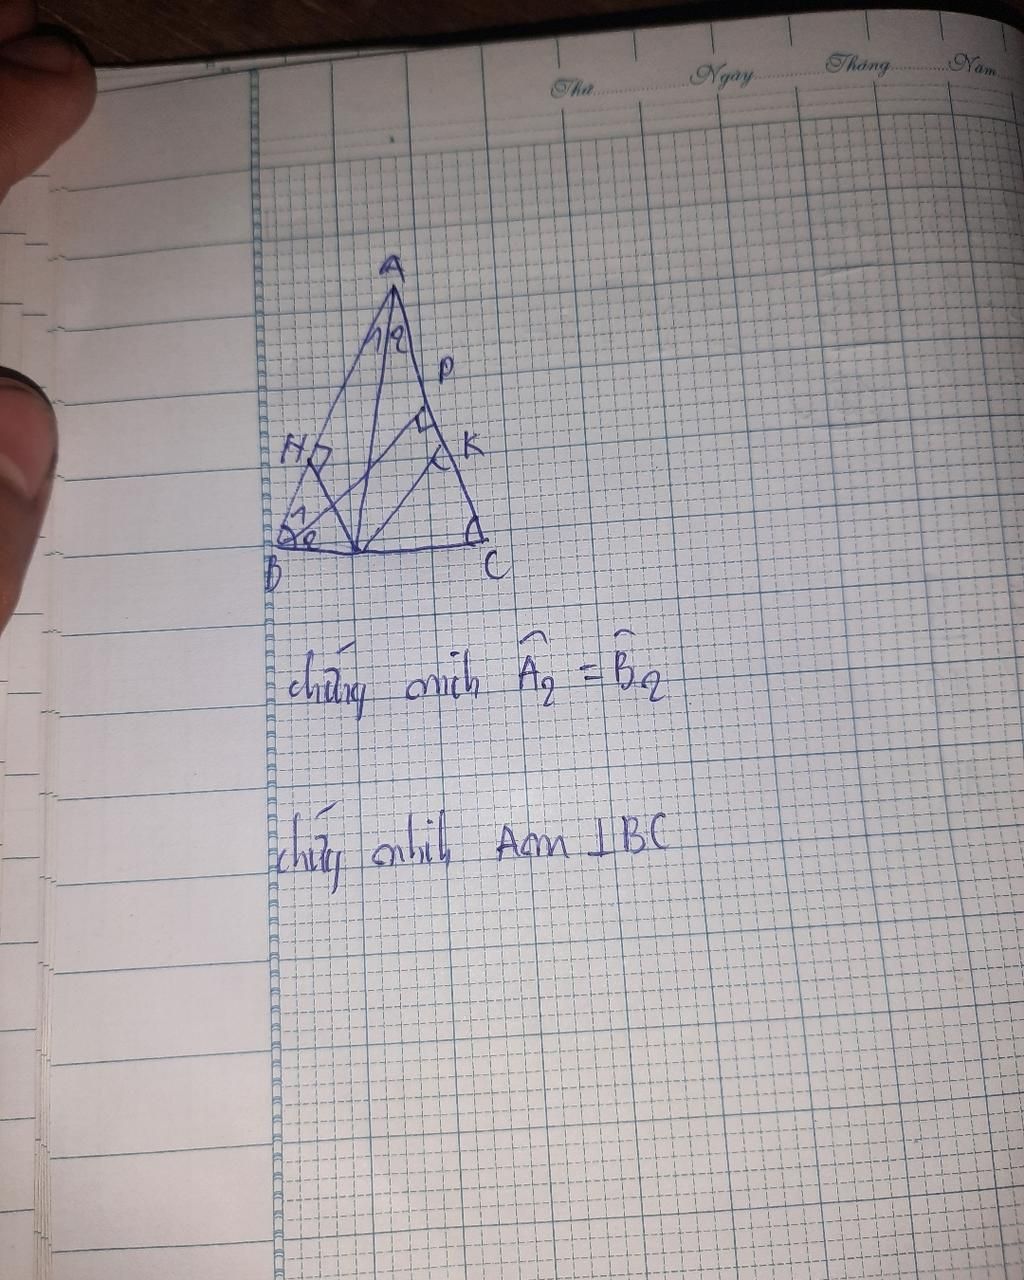 Thứ Ngày Tháng Năm
A
1 2
P
H
K
1
2
B
C
chứng mih Â2 = B̂2
chứng mhih Am ⊥ BC